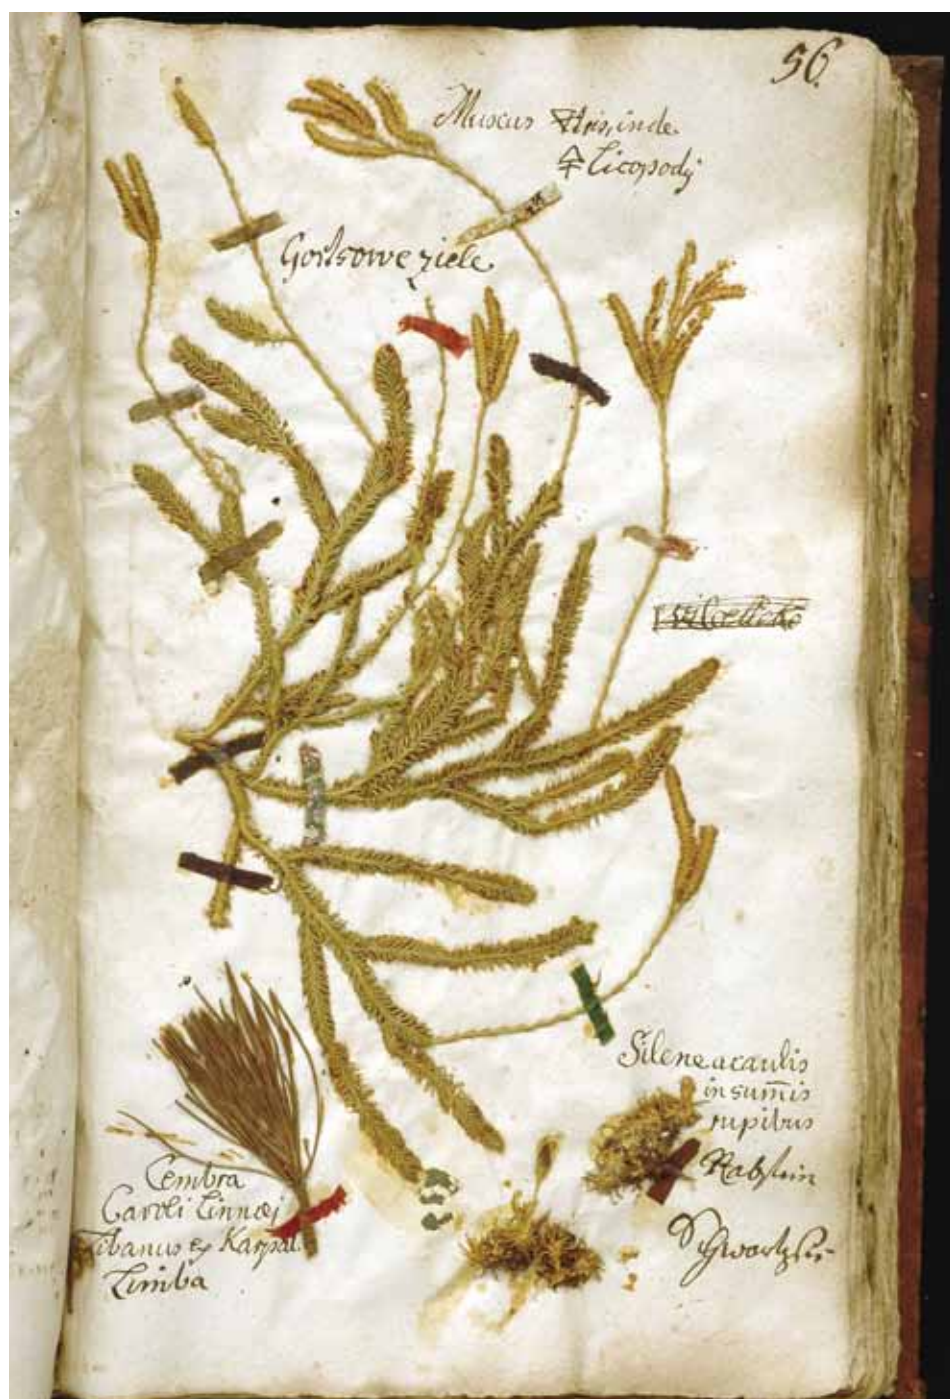 56.
Muscus
Licopodij
ziele
Silene acaulis
in sum̄is
rupibus
Rabstein
Cembra
Caroli Linnæj
Libanus ex Karpat.
Limba